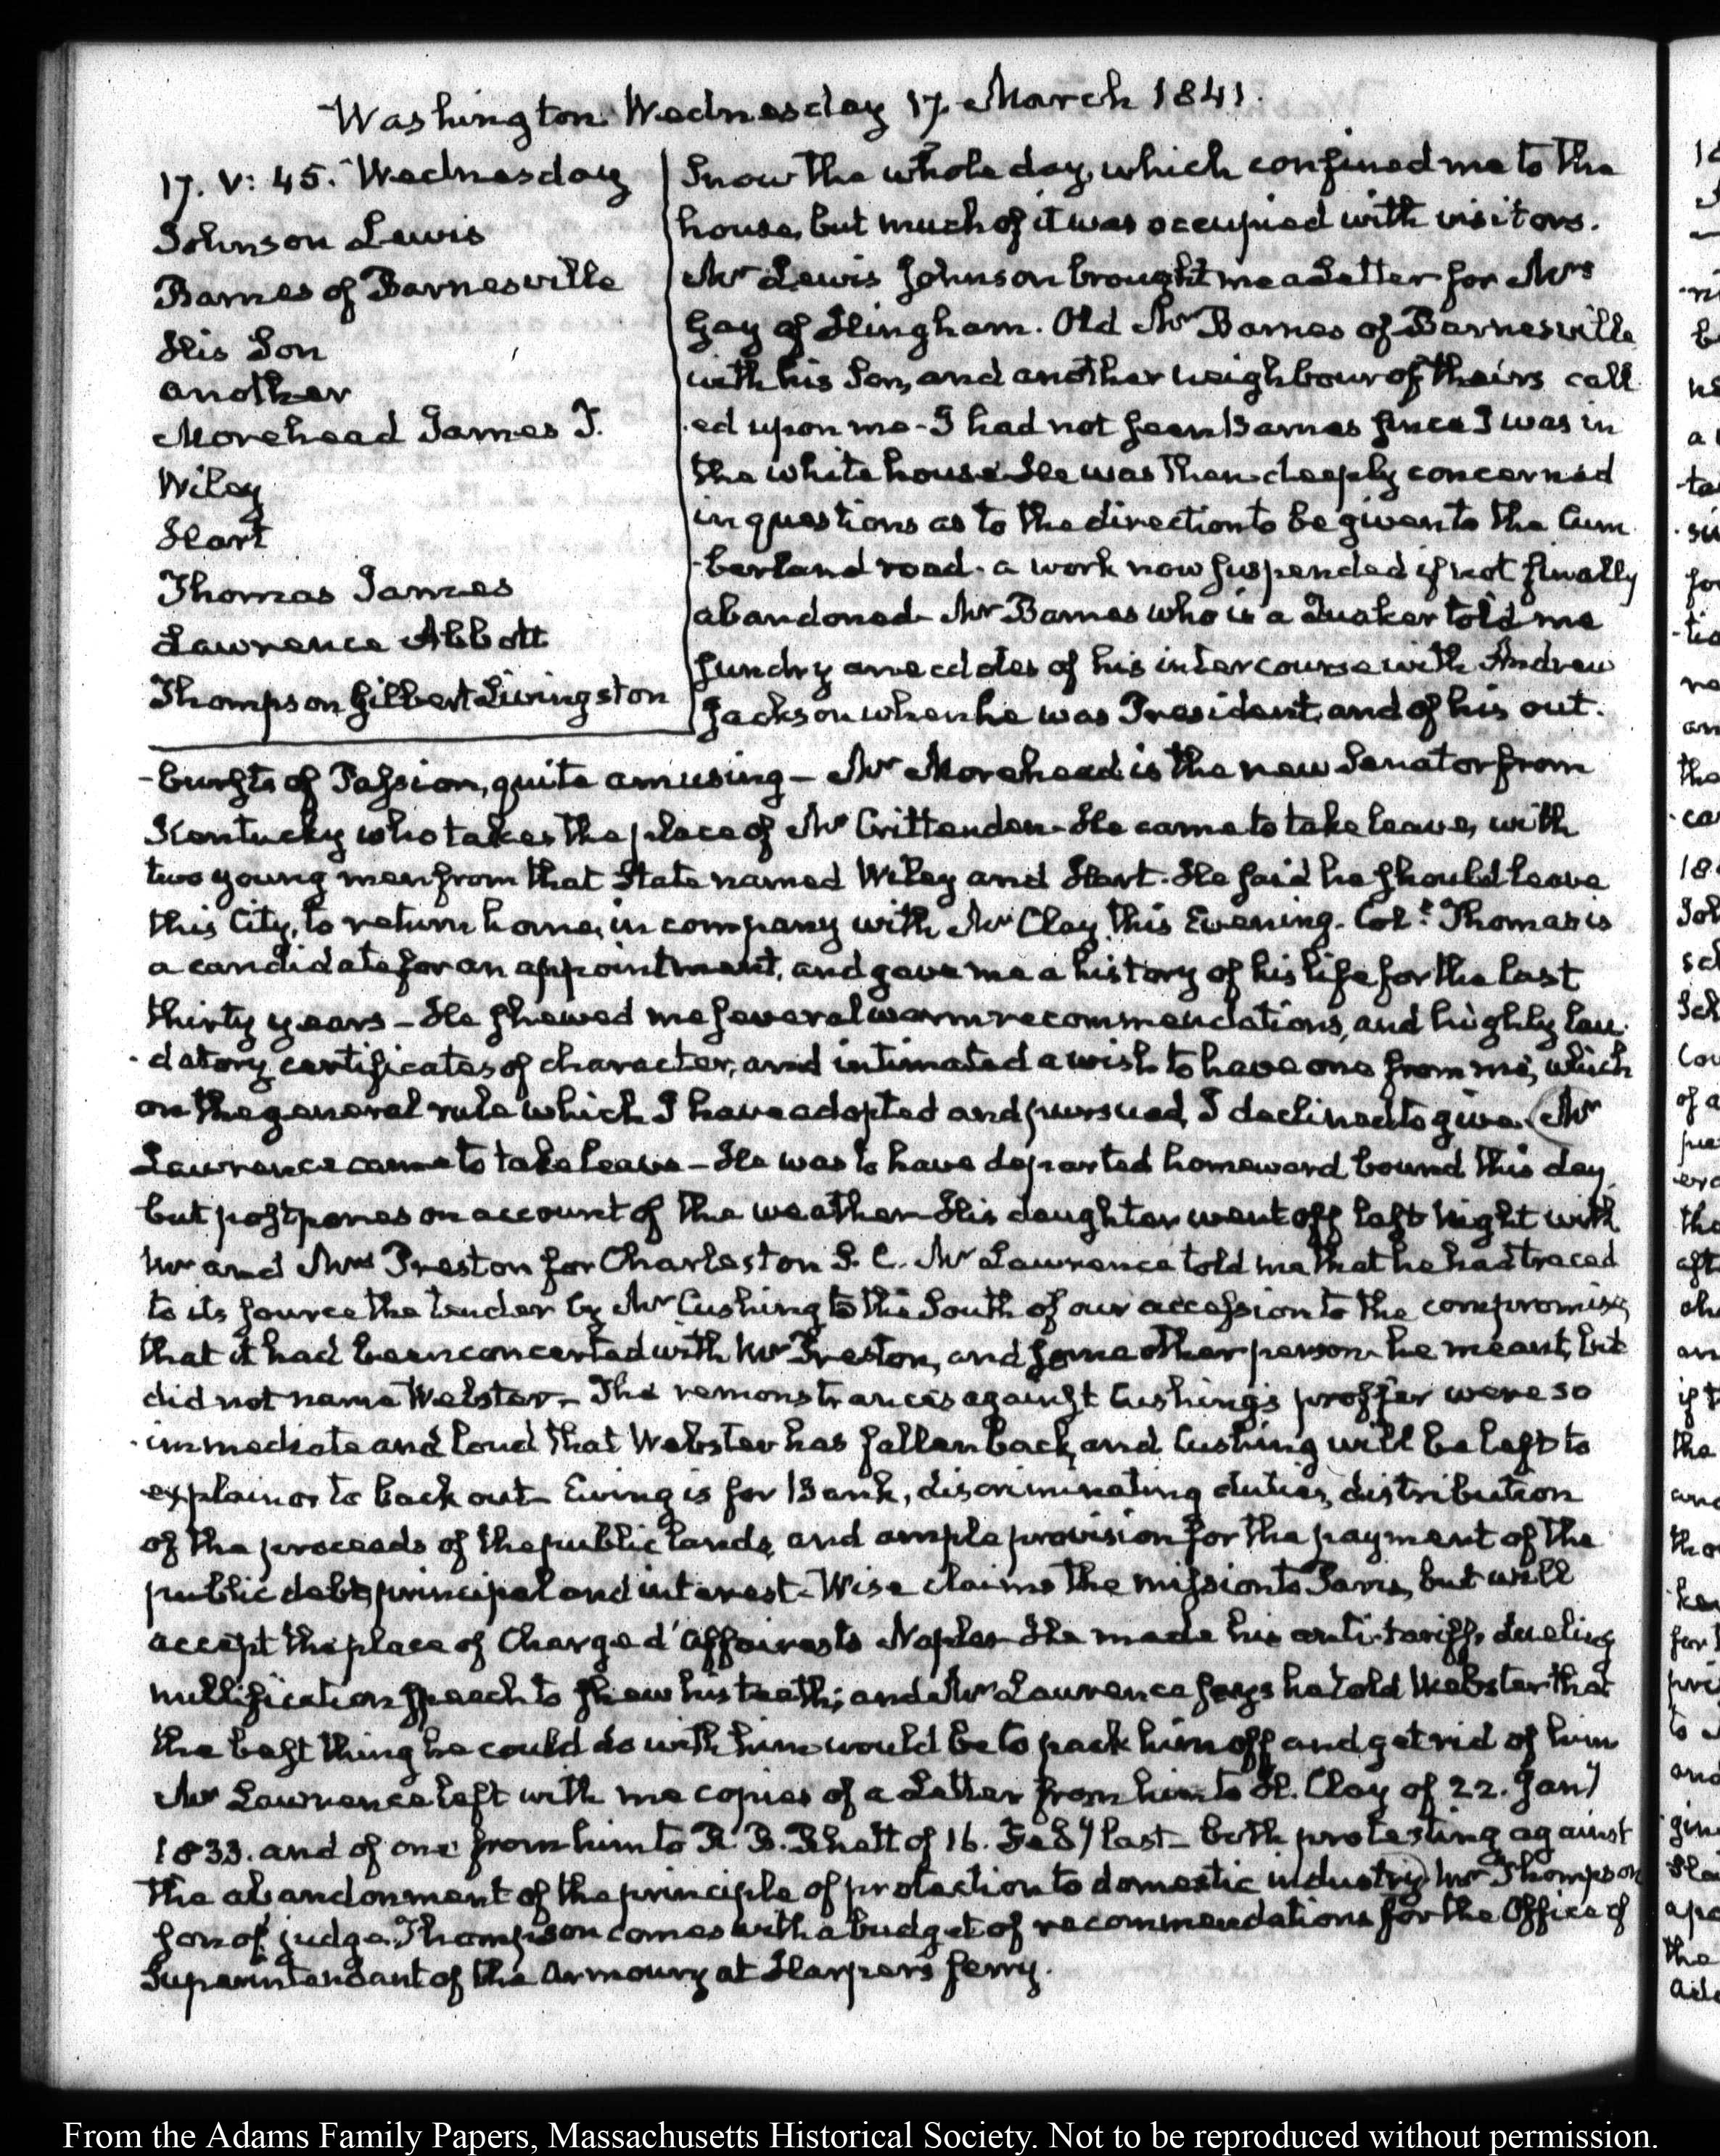 Washington Wednesday 17. March 1841.
17. V: 45. Wednesday
Johnson Lewis
Barnes of Barnesville
His Son
another
Morehead James T.
Wiley
Hart
Thomas James
Lawrence Abbott
Thompson Gilbert Livingston
Snow the whole day, which confined me to the
house, but much of it was occupied with visitors.
Mr Lewis Johnson brought me a Letter for Mrs
Gay of Hingham. Old Mr Barnes of Barnesville
with his Son, and another neighbour of theirs call
ed upon me - I had not seen Barnes since I was in
the white house He was then deeply concerned
in questions as to the direction to be given to the Cum
-berland road. a work now suspended if not finally
abandoned - Mr Barnes who is a Quaker told me
sundry anecdotes of his intercourse with Andrew
Jackson when he was President, and of his out.
-bursts of Passion, quite amusing - Mr Morehead is the new Senator from
Kentucky who takes the place of Mr Crittenden - He came to take leave, with
two young men from that State named Wiley and Hart. He said he should leave
this City, to return home, in company with Mr Clay this Evening. Col: Thomas is
a candidate for an appointment, and gave me a history of his life for the last
thirty years - He shewed me several warm recommendations, and highly lau
-datory certificates of character, and intimated a wish to have one from me, which
on the general rule which I have adopted and pursued, I declined to give. Mr
Lawrence came to take leave - He was to have departed homeward bound this day
but postpones on account of the weather - His daughter went off last Night with
Mr and Mrs Preston for Charleston S. C. Mr Lawrence told me that he had traced
to its source the tender by Mr Cushing to the South of our accession to the compromise,
that it had been concerted with Mr Preston, and some other person he meant, but
did not name Webster - The remonstrances against Cushing's proffer were so
immediate and loud that Webster has fallen back, and Cushing will be left to
explain or to back out - Ewing is for Bank, discriminating duties, distribution
of the proceeds of the public lands, and ample provision for the payment of the
public debt, principal and interest - Wise claims the mission to Paris, but will
accept the place of Chargé d'Affaires to Naples - He made his anti-tariff, dueling
nullification speech to shew his teeth; and Mr Lawrence says he told Webster that
the best thing he could do with him would be to pack him off and get rid of him
Mr Lawrence left with me copies of a Letter from him to H. Clay of 22. Jany
1833. and of one from him to R. B. Rhett of 16. Feby last - both protesting against
the abandonment of the principle of protection to domestic industry. Mr Thompson
son of judge Thompson comes with a budget of recommendations for the Office of
Superintendant of the Armoury at Harper's ferry.
From the Adams Family Papers, Massachusetts Historical Society. Not to be reproduced without permission.